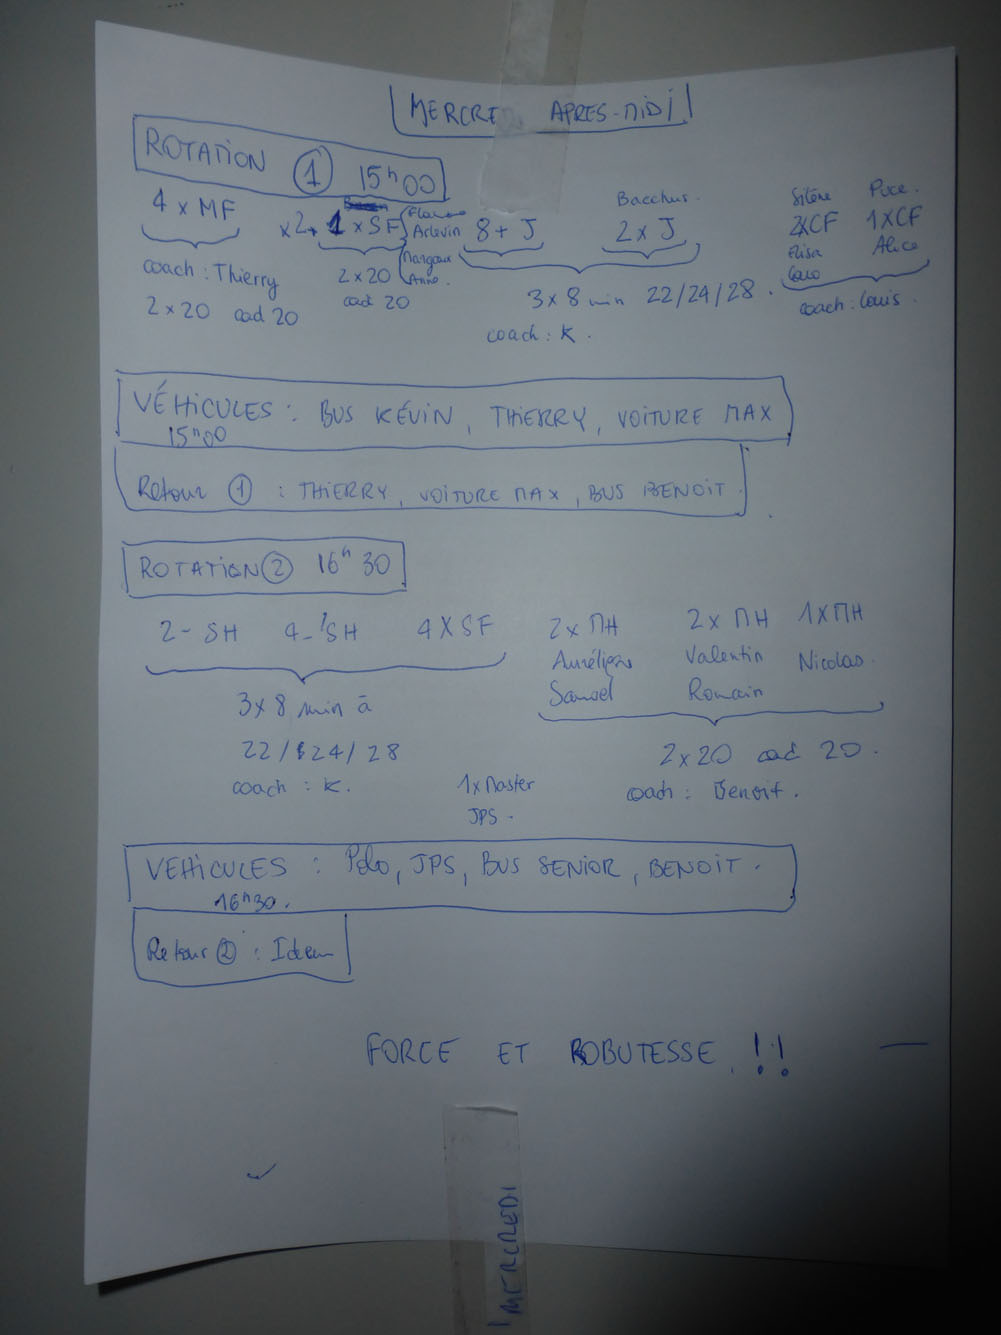 MERCREDI APRES-MIDI
ROTATION 1 15h00
4 x MF
coach : Thierry
2 x 20 cad 20
x2 1 x SF
Arlevin
Margaux
Anne
2 x 20
cad 20
8+ J
Bacchus
2 x J
3 x 8 min 22/24/28.
coach : K.
Silène
2XCF
Elisa
Caro
Puce.
1XCF
Alice
coach : Louis.
VÉHICULES : BUS KÉVIN, THIERRY, VOITURE MAX
15h00
Retour 1 : THIERRY, VOITURE MAX, BUS BENOIT.
ROTATION 2 16h30
2- SH 4- SH 4 X SF
3x8 min à
22/24/28
coach : K.
2 x MH
Aurélien
Samuel
2 x MH
Valentin
Romain
1 x MH
Nicolas.
2 x 20 cad 20.
coach : Benoit.
1x Master
JPS.
VEHICULES : Polo, JPS, BUS SENIOR, BENOIT.
16h30.
Retour 2 : Idem
FORCE ET ROBUTESSE !!
MERCREDI